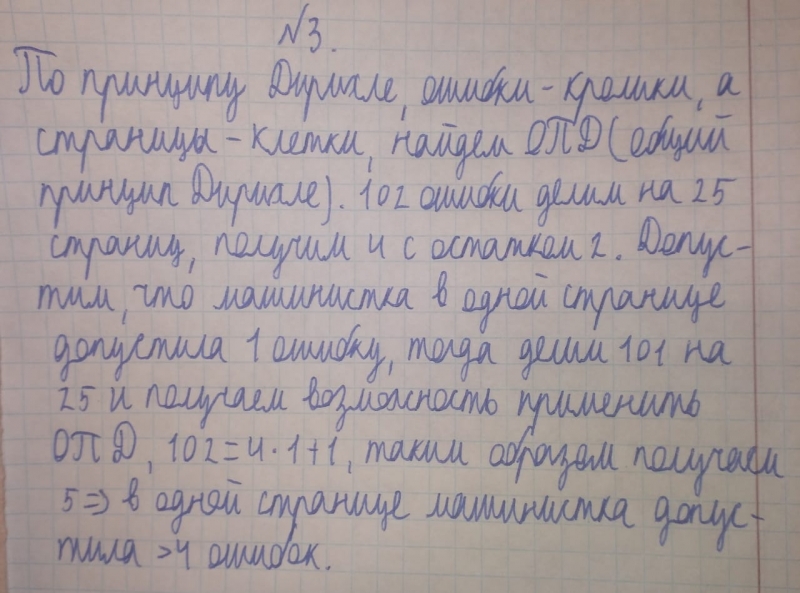 №3.
По принципу Дирихле, ошибки - кролики, а
страницы - клетки, найдем ОПД (общий
принцип Дирихле). 102 ошибки делим на 25
страниц, получим 4 с остатком 2. Допус-
тим, что машинистка в одной странице
допустила 1 ошибку, тогда делим 101 на
25 и получаем возможность применить
ОПД, 102=4·1+1, таким образом получаем
5 => в одной странице машинистка допус-
тила >4 ошибок.